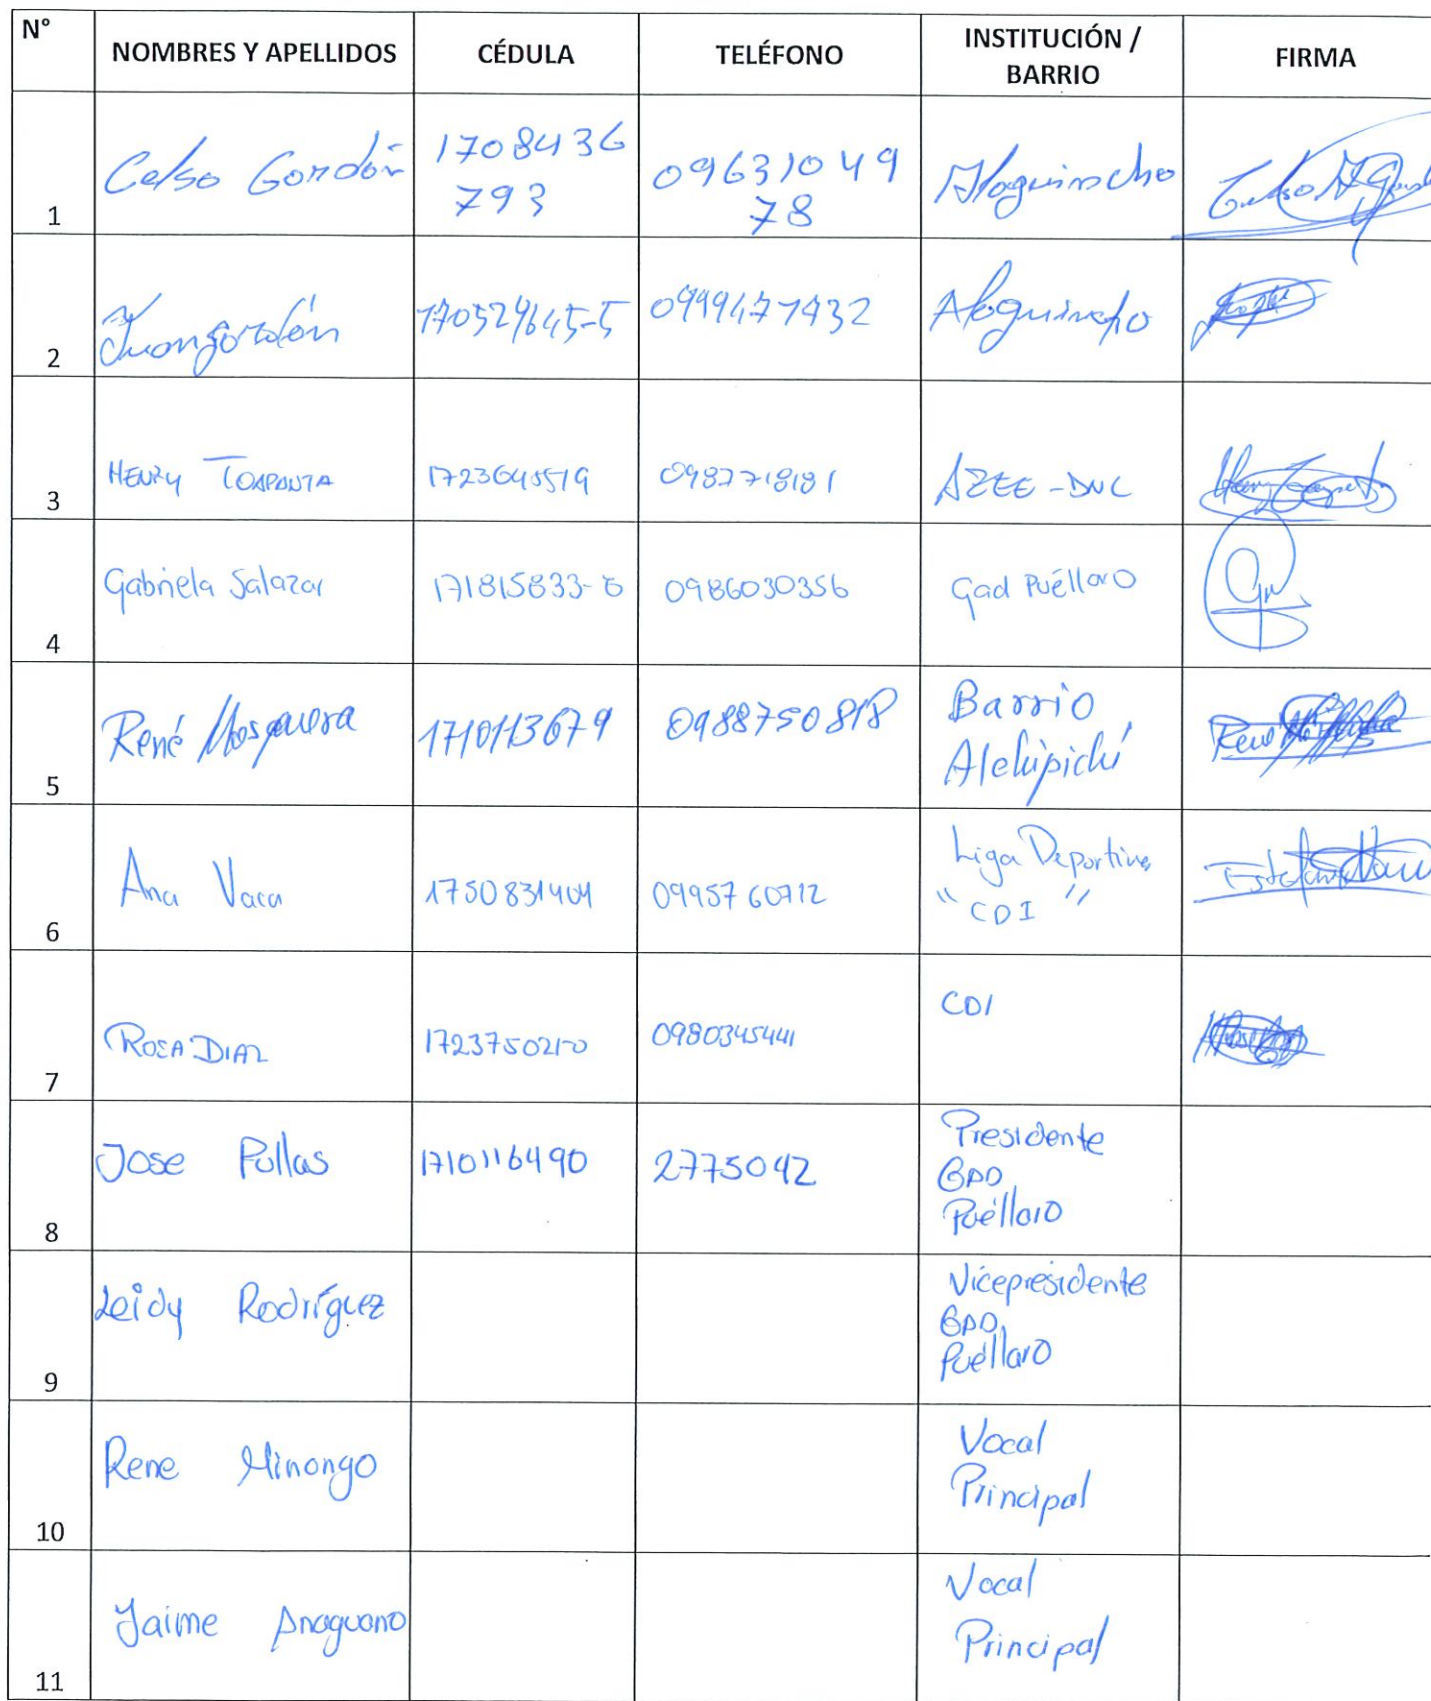 N° NOMBRES Y APELLIDOS CÉDULA TELÉFONO INSTITUCIÓN / BARRIO FIRMA
1 Celso Gordón 1708436793 0963104978 Aloguincho
2 Juan Gordón 170529645-5 Aloguincho
3 HENRY TOAPANTA 1723645519 0987718181 AZEE-DNC
4 Gabriela Salazar 0986030356 Gad Puéllaro
5 René Mosquera 1710113679 0988750818 Barrio Alchipichí
6 Ana Vaca 1750831404 0995760712 Liga Deportiva "CDI"
7 ROSA DIAZ 172375021-0 0980345441 CDI
8 Jose Pullas 1710116490 2775042 Presidente GAD Puéllaro
9 Leidy Rodríguez Vicepresidente GAD Puéllaro
10 Rene Minango Vocal Principal
11 Jaime Anaguano Vocal Principal